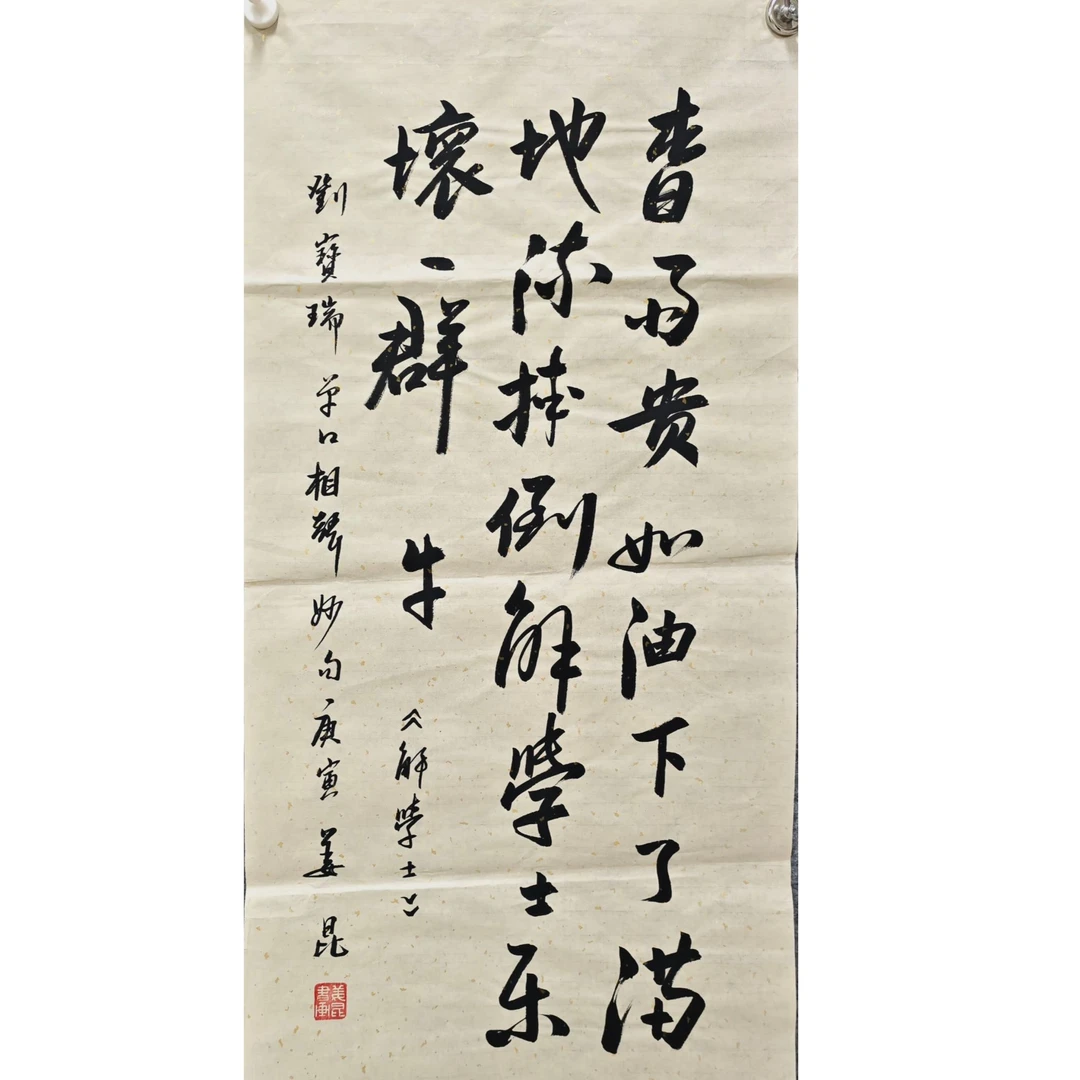 春雨贵如油下了满
地流捧倒解學士乐
壞一群牛
《解學士》
劉寶瑞單口相聲妙句庚寅姜昆
姜昆書画